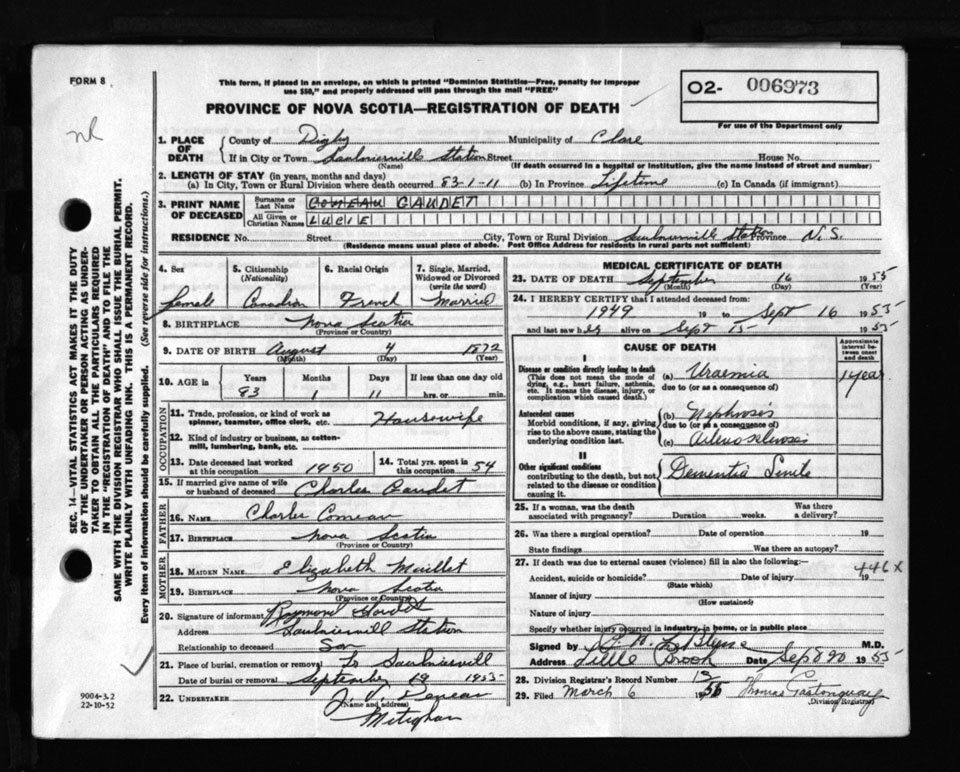 FORM 8
nR
This form, if placed in an envelope, on which is printed "Dominion Statistics—Free, penalty for improper
use $50," and properly addressed will pass through the mail "FREE"
PROVINCE OF NOVA SCOTIA—REGISTRATION OF DEATH
O2- 006973
For use of the Department only
SEC. 14—VITAL STATISTICS ACT MAKES IT THE DUTY
OF THE UNDERTAKER OR PERSON ACTING AS UNDER-
TAKER TO OBTAIN ALL THE PARTICULARS REQUIRED
IN THE "REGISTRATION OF DEATH" AND TO FILE THE
SAME WITH THE DIVISION REGISTRAR WHO SHALL ISSUE THE BURIAL PERMIT.
WRITE PLAINLY WITH UNFADING INK. THIS IS A PERMANENT RECORD.
Every item of information should be carefully supplied. (See reverse side for instructions.)
1. PLACE OF DEATH County of Digby Municipality of Clare
If in City or Town Saulnierville Station Street House No.
(Name) (If death occurred in a hospital or institution, give the name instead of street and number)
2. LENGTH OF STAY (in years, months and days)
(a) In City, Town or Rural Division where death occurred 83-1-11 (b) In Province Lifetime (c) In Canada (if immigrant)
3. PRINT NAME OF DECEASED Surname or Last Name COMEAU GAUDET
All Given or Christian Names LUCIE
RESIDENCE No. Street City, Town or Rural Division Saulnierville Station Province N.S.
(Residence means usual place of abode. Post Office Address for residents in rural parts not sufficient)
4. Sex 5. Citizenship (Nationality) 6. Racial Origin 7. Single, Married, Widowed or Divorced (write the word)
Female Canadian French Married
8. BIRTHPLACE Nova Scotia
(Province or Country)
9. DATE OF BIRTH August 4 1872
(Month) (Day) (Year)
10. AGE in Years Months Days If less than one day old
83 1 11 hrs. or min.
OCCUPATION
11. Trade, profession, or kind of work as spinner, teamster, office clerk, etc. Housewife
12. Kind of industry or business, as cotton-mill, lumbering, bank, etc.
13. Date deceased last worked at this occupation 1950 14. Total yrs. spent in this occupation 54
15. If married give name of wife or husband of deceased Charles Gaudet
FATHER
16. NAME Charles Comeau
17. BIRTHPLACE Nova Scotia
(Province or Country)
MOTHER
18. MAIDEN NAME Elizabeth Maillet
19. BIRTHPLACE Nova Scotia
(Province or Country)
20. Signature of informant Raymond Gaudet
Address Saulniervill Station
Relationship to deceased Son
21. Place of burial, cremation or removal To Saulniervill
Date of burial or removal September 19 1955
22. UNDERTAKER
(Name and address)
Meteghan
9004-3.2
22-10-52
MEDICAL CERTIFICATE OF DEATH
23. DATE OF DEATH September 16 1955
(Month) (Day) (Year)
24. I HEREBY CERTIFY that I attended deceased from:
1949 19 to Sept 16 1955
and last saw her alive on Sept 15 1955
CAUSE OF DEATH
Approximate interval between onset and death
I
Disease or condition directly leading to death
(This does not mean the mode of dying, e.g., heart failure, asthenia, etc. It means the disease, injury, or complication which caused death.)
(a) Uraemia 1 year
due to (or as a consequence of)
Antecedent causes
Morbid conditions, if any, giving rise to the above cause, stating the underlying condition last.
(b) Nephrosis
due to (or as a consequence of)
(c) Arteriosclerosis
II
Other significant conditions
contributing to the death, but not related to the disease or condition causing it.
Dementia Senile
25. If a woman, was the death associated with pregnancy? Duration weeks. Was there a delivery?
26. Was there a surgical operation? Date of operation 19
State findings Was there an autopsy?
27. If death was due to external causes (violence) fill in also the following:— 446X
Accident, suicide or homicide? Date of injury 19
(State which)
Manner of injury
(How sustained)
Nature of injury
Specify whether injury occurred in industry, in home, or in public place
Signed by LeBlanc M.D.
Address Little Brook Date Sept 20 1955
28. Division Registrar's Record Number 13
29. Filed March 6 1956 Thomas Castonguay
(Division Registrar)